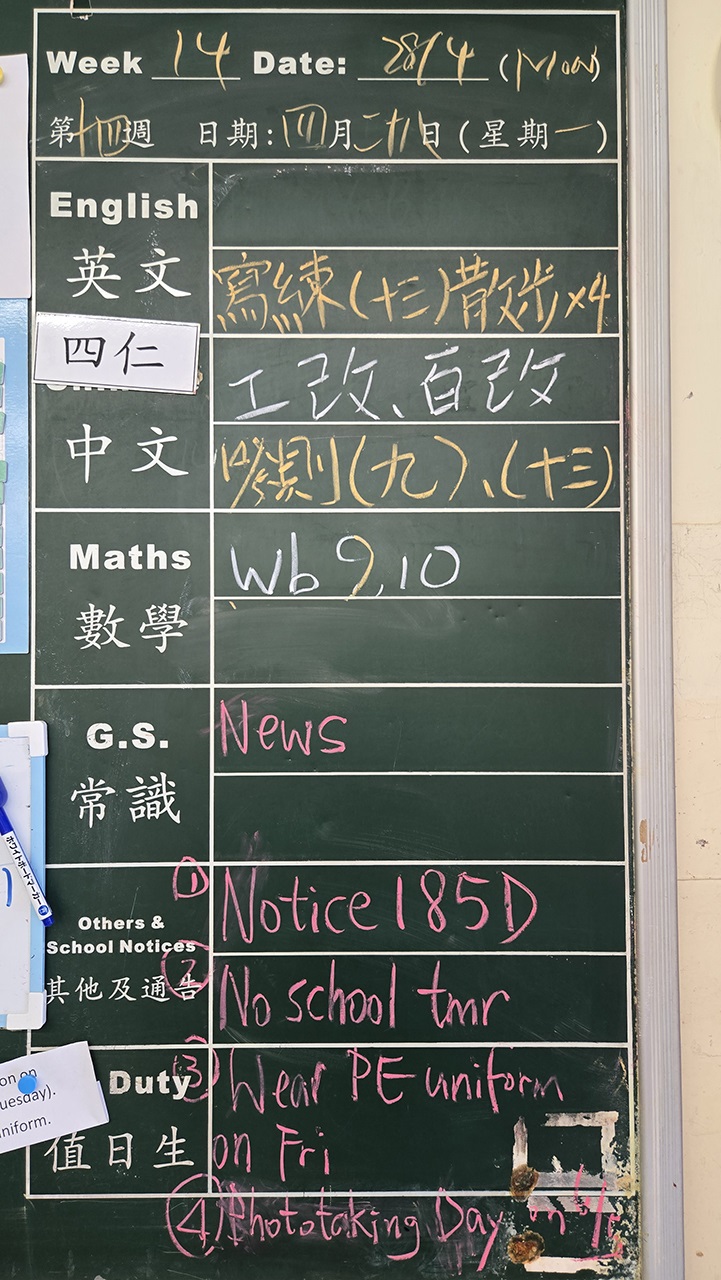 Week 14 Date: 28/4 (Mon)
第十四週 日期:四月二十八日(星期一)
English
英文
寫練(十三)散步x4
四仁
工改、百改
中文
(十三)
Maths
Wb 9,10
數學
G.S.
News
常識
① Notice 185D
Others &
School Notices
② No school tmr
其他及通告
③ Wear PE uniform
Duty
on Fri
值日生
④ Phototaking Day on
on on
uesday).
niform.
ホワイトボードマーカー